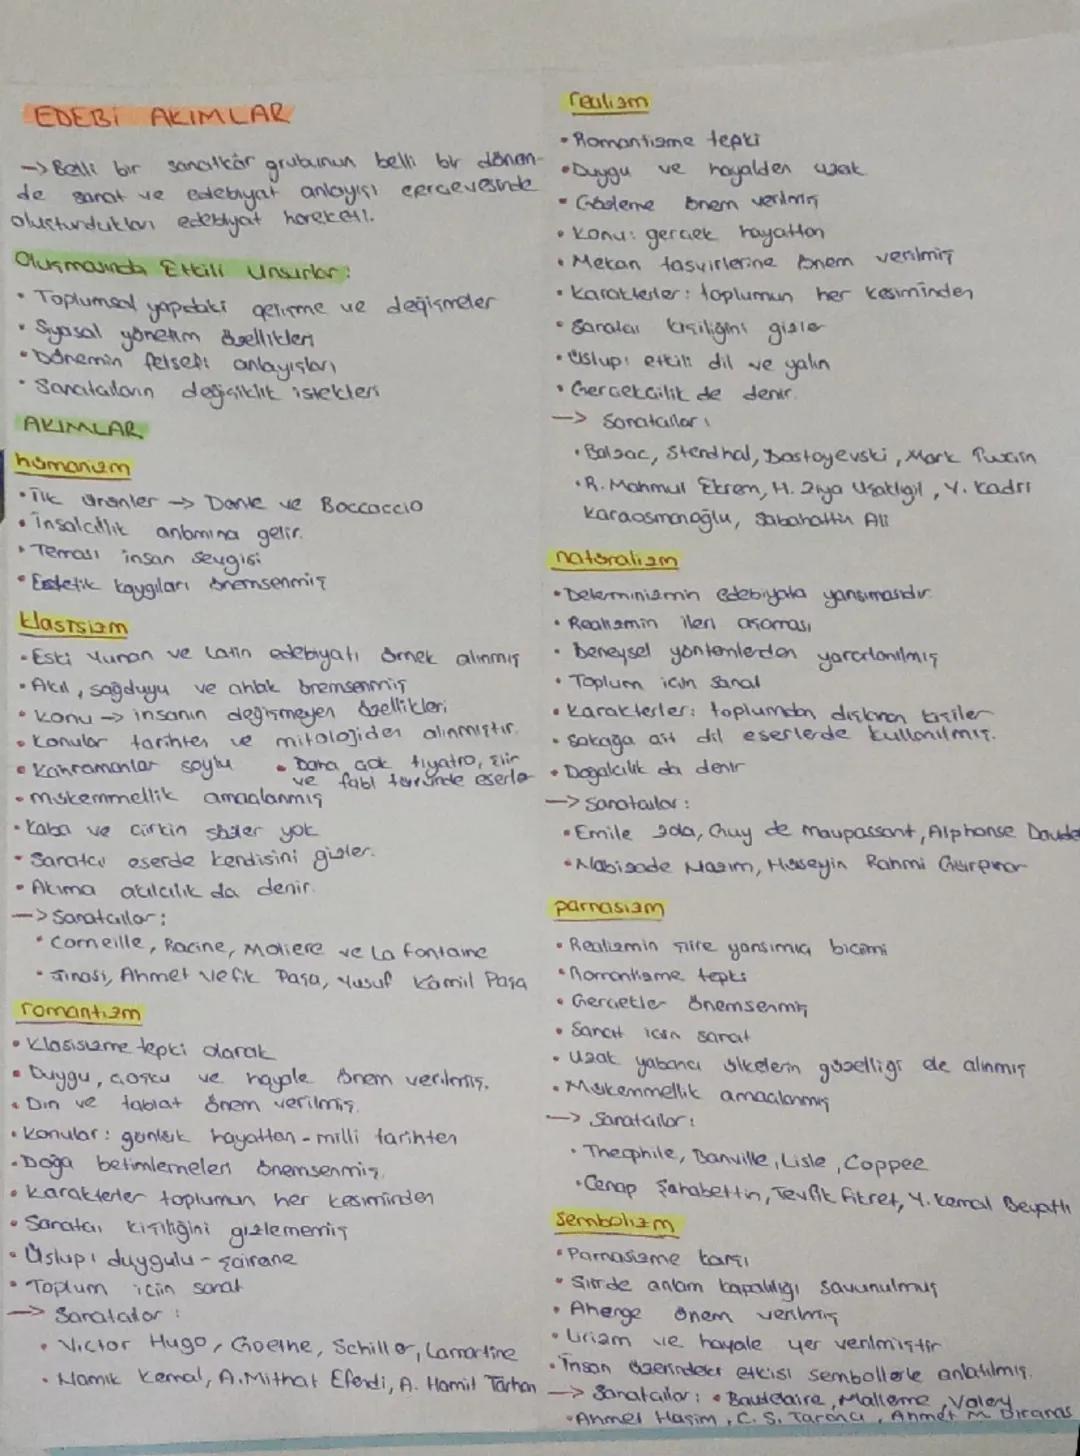 EDEBİ AKIMLAR
→ Belli bir sanatkâr grubunun belli bir dönem-
de sanat ve edebiyat anlayışı çerçevesinde
oluşturdukları edebiyat hareketi.
Oluşmasında Etkili Unsurlar:
• Toplumsal yapıdaki gelişme ve değişmeler
• Siyasal yönetim özellikleri
• Dönemin felsefi anlayışları
• Sanatçıların değişiklik istekleri
AKIMLAR
hümanizm
• İlk ürünler → Dante ve Boccaccio
• İnsancıllık anlamına gelir.
• Teması insan sevgisi
• Estetik kaygıları önemsenmiş
klasisizm
• Eski Yunan ve Latin edebiyatı örnek alınmış
• Akıl, sağduyu ve ahlak önemsenmiş
• Konu → insanın değişmeyen özellikleri
• Konular tarihten ve mitolojiden alınmıştır.
• Kahramanlar soylu • Daha çok tiyatro, şiir
ve fabl türünde eserler
• mükemmellik amaçlanmış
• Kaba ve çirkin sözler yok
• Sanatçı eserde kendisini gizler.
• Akıma akılcılık da denir.
→ Sanatçılar:
• Corneille, Racine, Moliere ve La Fontaine
• Şinasi, Ahmet Vefik Paşa, Yusuf Kâmil Paşa
romantizm
• Klasisizme tepki olarak
• Duygu, coşku ve hayale önem verilmiş.
• Din ve tabiat önem verilmiş.
• Konular: günlük hayattan - milli tarihten
• Doğa betimlemeleri önemsenmiş.
• Karakterler toplumun her kesiminden
• Sanatçı kişiliğini gizlememiş
• Üslup: duygulu - şairane
• Toplum için sanat
→ Sanatçılar:
• Victor Hugo, Goethe, Schiller, Lamartine
• Namık Kemal, A. Mithat Efendi, A. Hamit Tarhan
realizm
• Romantizme tepki
• Duygu ve hayalden uzak
• Gözleme önem verilmiş
• Konu: gerçek hayattan
• Mekan tasvirlerine önem verilmiş
• Karakterler: toplumun her kesiminden
• Sanatçı kişiliğini gizler
• Üslup: etkili dil ve yalın
• Gerçekçilik de denir.
→ Sanatçılar:
• Balzac, Stendhal, Dostoyevski, Mark Twain
• R. Mahmut Ekrem, H. Ziya Uşaklıgil, Y. Kadri
Karaosmanoğlu, Sabahattin Ali
natüralizm
• Determinizmin edebiyata yansımasıdır.
• Realizmin ileri aşaması
• Deneysel yöntemlerden yararlanılmış
• Toplum için sanat
• Karakterler: toplumdan dışlanan kişiler
• Sokağa ait dil eserlerde kullanılmış.
• Doğalcılık da denir
→ Sanatçılar:
• Emile Zola, Guy de Maupassant, Alphonse Daudet
• Nabizade Nazım, Hüseyin Rahmi Gürpınar
parnasizm
• Realizmin şiire yansımış biçimi
• Romantizme tepki
• Gerçekler önemsenmiş
• Sanat için sanat
• Uzak yabancı ülkelerin güzelliği de alınmış
• Mükemmellik amaçlanmış
→ Sanatçılar:
• Theophile, Banville, Lisle, Coppee
• Cenap Şahabettin, Tevfik Fikret, Y. Kemal Beyatlı
Sembolizm
• Parnasizme karşı
• Şiirde anlam kapalılığı savunulmuş
• Ahenge önem verilmiş
• Lirizm ve hayale yer verilmiştir
• İnsan üzerindeki etkisi sembollerle anlatılmış.
→ Sanatçılar: • Baudelaire, Mallerme, Valery
• Ahmet Haşim, C. S. Tarancı, Ahmet M. Dıranas